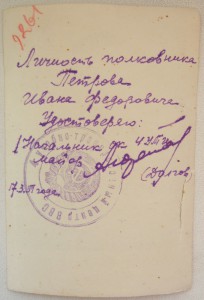 9261
Личность полковника
Петрова
Ивана Федоровича
Удостоверяю:
Начальник ОК
майор
17.3. года